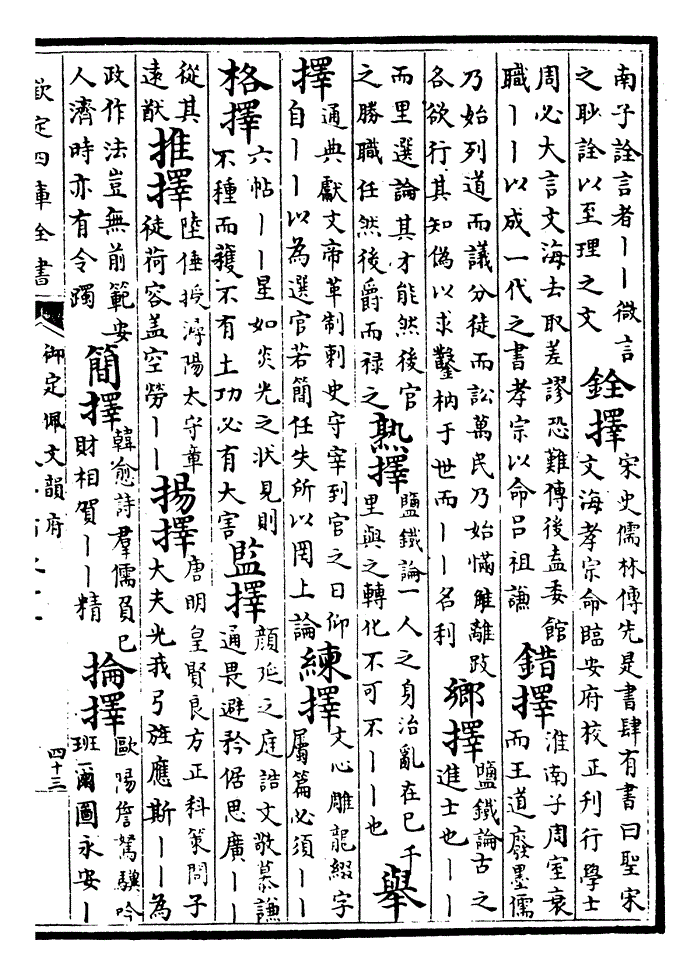 南子詮言者丨丨微言
之眇詮以至理之文
銓擇
宋史儒林傳先是書肆有書曰聖宋
文海孝宗命臨安府校正刊行學士
周必大言文海去取差謬恐難傳後盍委館
職丨丨以成一代之書孝宗以命呂祖謙
錯擇
淮南子周室衰
而王道廢墨儒
乃始列道而議分徒而訟萬民乃始慲觟離跂
各欲行其知偽以求鑿枘于世而丨丨名利
鄉擇
鹽鐵論古之
進士也丨丨
而里選論其才能然後官
之勝職任然後爵而祿之
熟擇
鹽鐵論一人之身治亂在已千
里與之轉化不可不丨丨也
舉
擇
通典獻文帝革制刺史守宰到官之日仰
自丨丨以為選官若簡任失所以罔上論
練擇
文心雕龍綴字
屬篇必須丨丨
格擇
六帖丨丨星如炎光之狀見則
不種而穫不有土功必有大害
監擇
顔延之庭誥文敬慕謙
通畏避矜倨思廣丨丨
從其
遠猷
推擇
陸倕授潯陽太守章
徒荷容盖空勞丨丨
揚擇
唐明皇賢良方正科策問子
大夫光我弓旌應斯丨丨為
政作法豈無前範安
人濟時亦有令躅
簡擇
韓愈詩羣儒負已
財相賀丨丨精
掄擇
歐陽詹駑驥吟
班爾圖永安丨
欽定四庫全書
御定佩文韻府
四十三